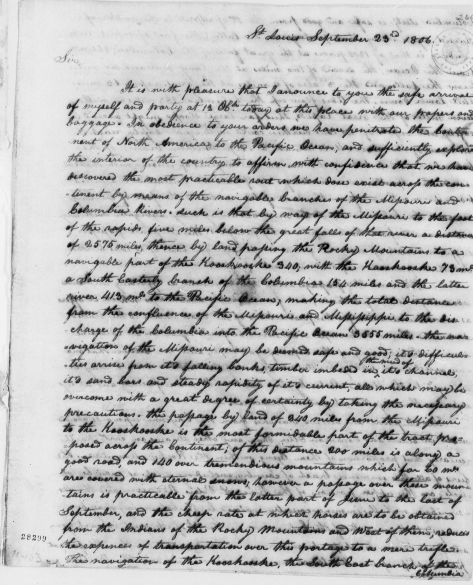 St. Louis September 23d 1806.
Sir,
It is with pleasure that I anounce to you the safe arrival
of myself and party at 12 Oclk. today at this place with our papers and
baggage. In obedience to your orders we have penetrated the Conti-
nent of North America to the Pacific Ocean, and sufficiently explored
the interior of the country to affirm with confidence that we have
discovered the most practicable rout which dose exist across the con-
tinent by means of the navigable branches of the Missouri and
Columbia Rivers. Such is that by way of the Missouri to the foot
of the rapids five miles below the great falls of that river a distance
of 2575 miles, thence by land passing the Rocky Mountains to a
navigable part of the Kooskooske 340; with the Kooskooske 73 mls.
a South Easterly branch of the Columbia 154 miles and the latter
river 413 mls. to the Pacific Ocean; making the total distance
from the confluence of the Missouri and Mississippi to the dis-
charge of the Columbia into the Pacific Ocean 3555 miles. The na-
vigation of the Missouri may be deemed safe and good; it's difficul-
ties arise from it's falling banks, timber imbeded in the mud of it's channel,
it's sand bars and steady rapidity of it's current, all which may be
overcome with a great degree of certainty by taking the necessary
precautions. The passage by land of 340 miles from the Missouri
to the Kooskooske is the most formidable part of the tract pro-
posed across the Continent; of this distance 200 miles is along a
good road, and 140 over tremendious mountains which for 60 mls.
are covered with eternal snows; however a passage over these moun-
tains is practicable from the latter part of June to the last of
September, and the cheep rate at which horses are to be obtained
from the Indians of the Rocky Mountains and West of them, reduces
the expences of transportation over this portage to a mere trifle.
The navigation of the Kooskooske, the South East branch of the
Columbia
28299